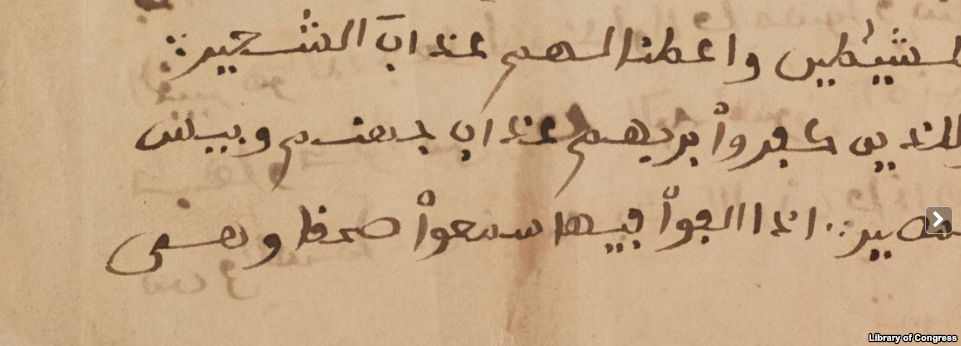 لشيطين واعطنا لهم عذاب الشجير
للذين كفروا بربهم عذاب جهنم وبيس
اذا القوا فيها سمعوا وهي
Library of Congress